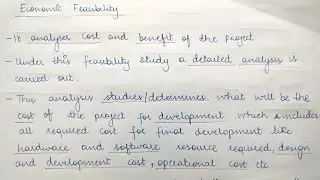 Economic Feasibility
- It analyses cost and benefit of the project
- Under this feasibility study a detailed analysis is
carried out.
- This analysis studies/determines what will be the
cost of the project for development which includes
all required cost for final development like
hardware and software resource required, design
and development cost, operational cost etc